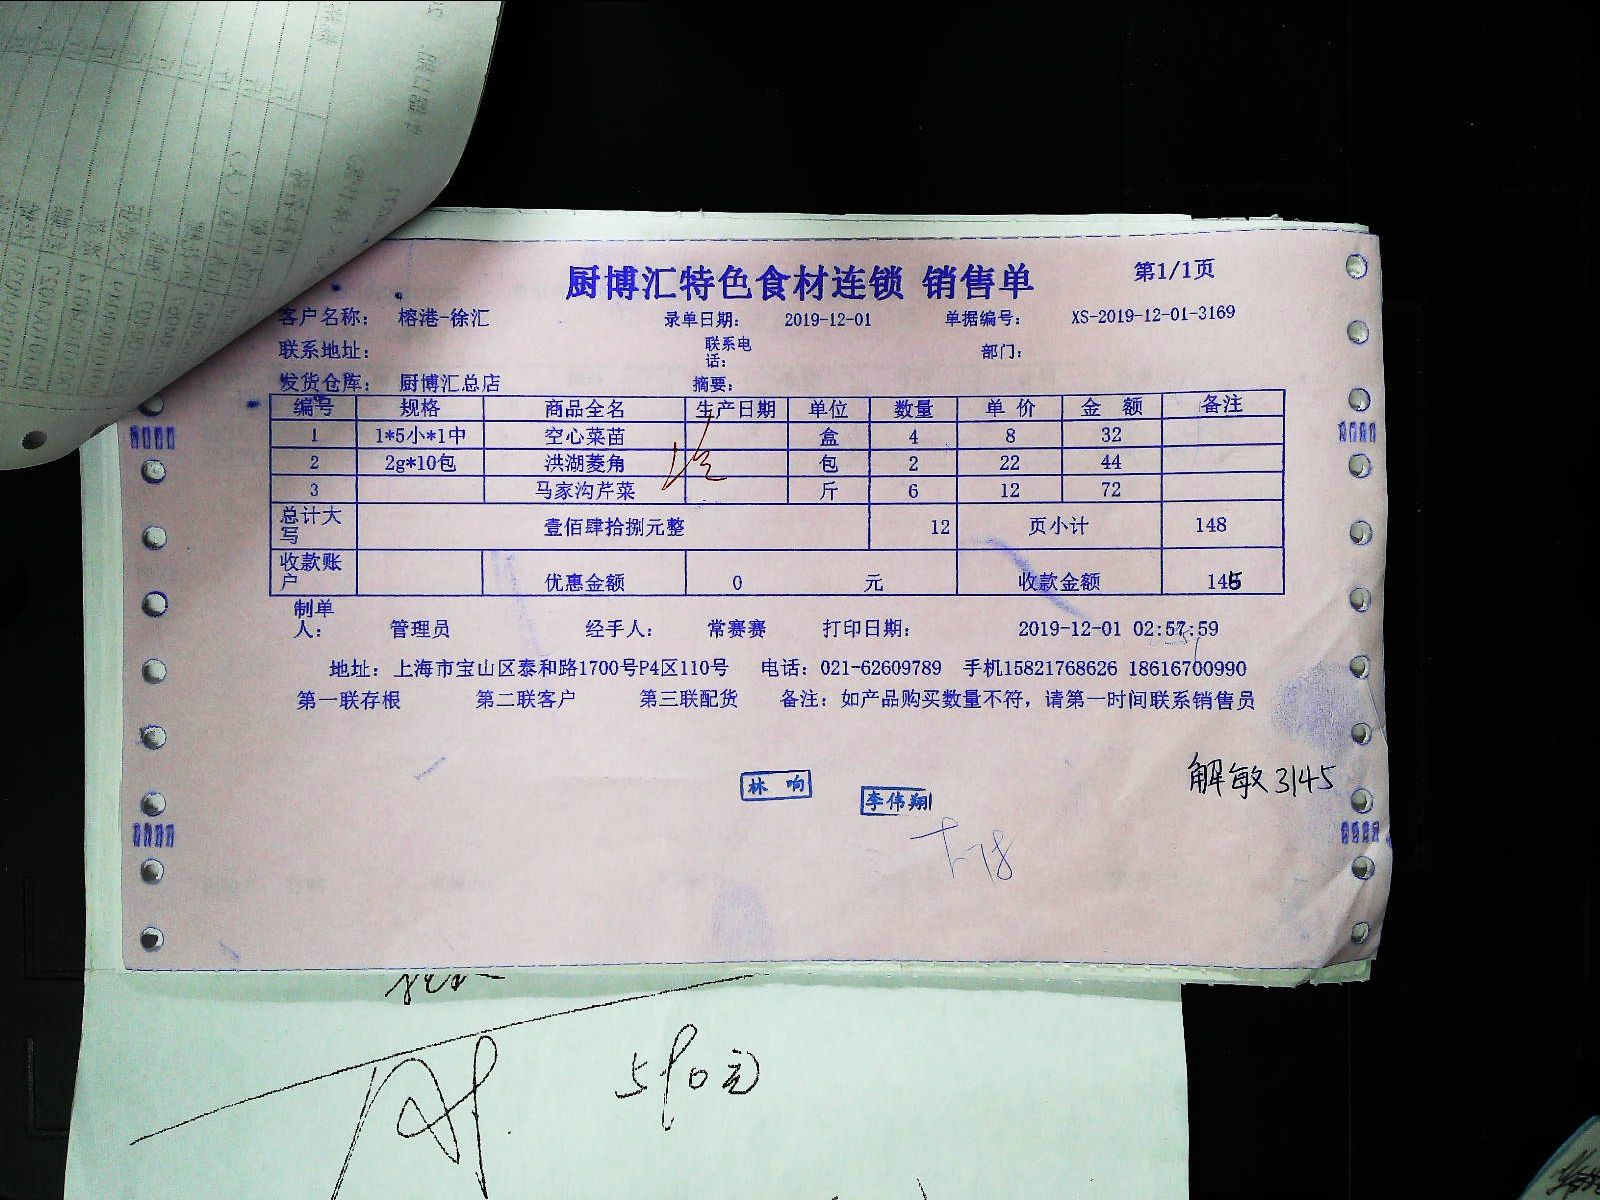 厨博汇特色食材连锁 销售单 第1/1页
客户名称： 榕港-徐汇 录单日期： 2019-12-01 单据编号： XS-2019-12-01-3169
联系地址： 联系电话： 部门：
发货仓库： 厨博汇总店 摘要：
编号 规格 商品全名 生产日期 单位 数量 单 价 金 额 备注
1 1*5小*1中 空心菜苗 盒 4 8 32
2 2g*10包 洪湖菱角 包 2 22 44
3 马家沟芹菜 斤 6 12 72
总计大写 壹佰肆拾捌元整 12 页小计 148
收款账户 优惠金额 0 元 收款金额
制单人： 管理员 经手人： 常赛赛 打印日期： 2019-12-01 02:57:59
地址：上海市宝山区泰和路1700号P4区110号 电话：021-62609789 手机15821768626 18616700990
第一联存根 第二联客户 第三联配货 备注：如产品购买数量不符，请第一时间联系销售员
林 响
李伟翔
解敏3145